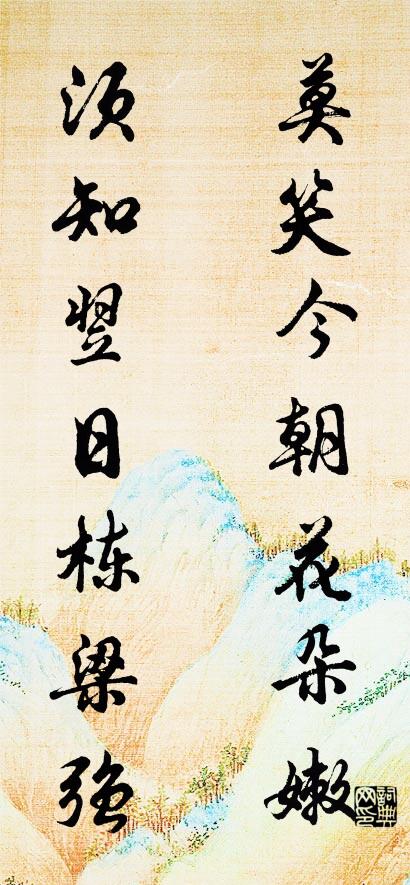 莫笑今朝花朵嫩
须知翌日栋梁强
詞典网印